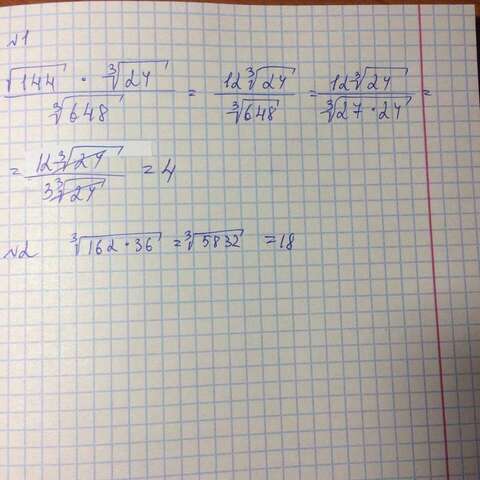 №1
√144 · ∛24 / ∛648 = 12∛24 / ∛648 = 12∛24 / ∛27·24 =
= 12∛24 / 3∛24 = 4
№2 ∛162·36 = ∛5832 = 18